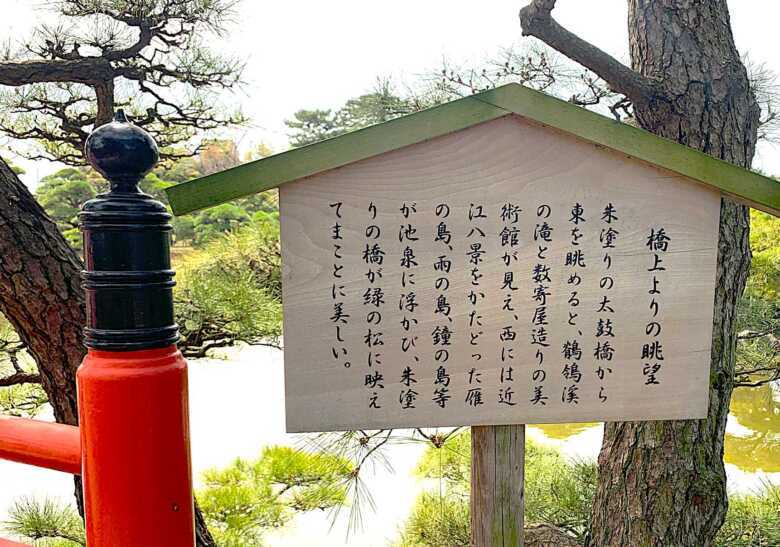 橋上よりの眺望
朱塗りの太鼓橋から
東を眺めると、鶺鴒渓
の滝と数寄屋造りの美
術館が見え、西には近
江八景をかたどった雁
の島、雨の島、鐘の島等
が池泉に浮かび、朱塗
りの橋が緑の松に映え
てまことに美しい。